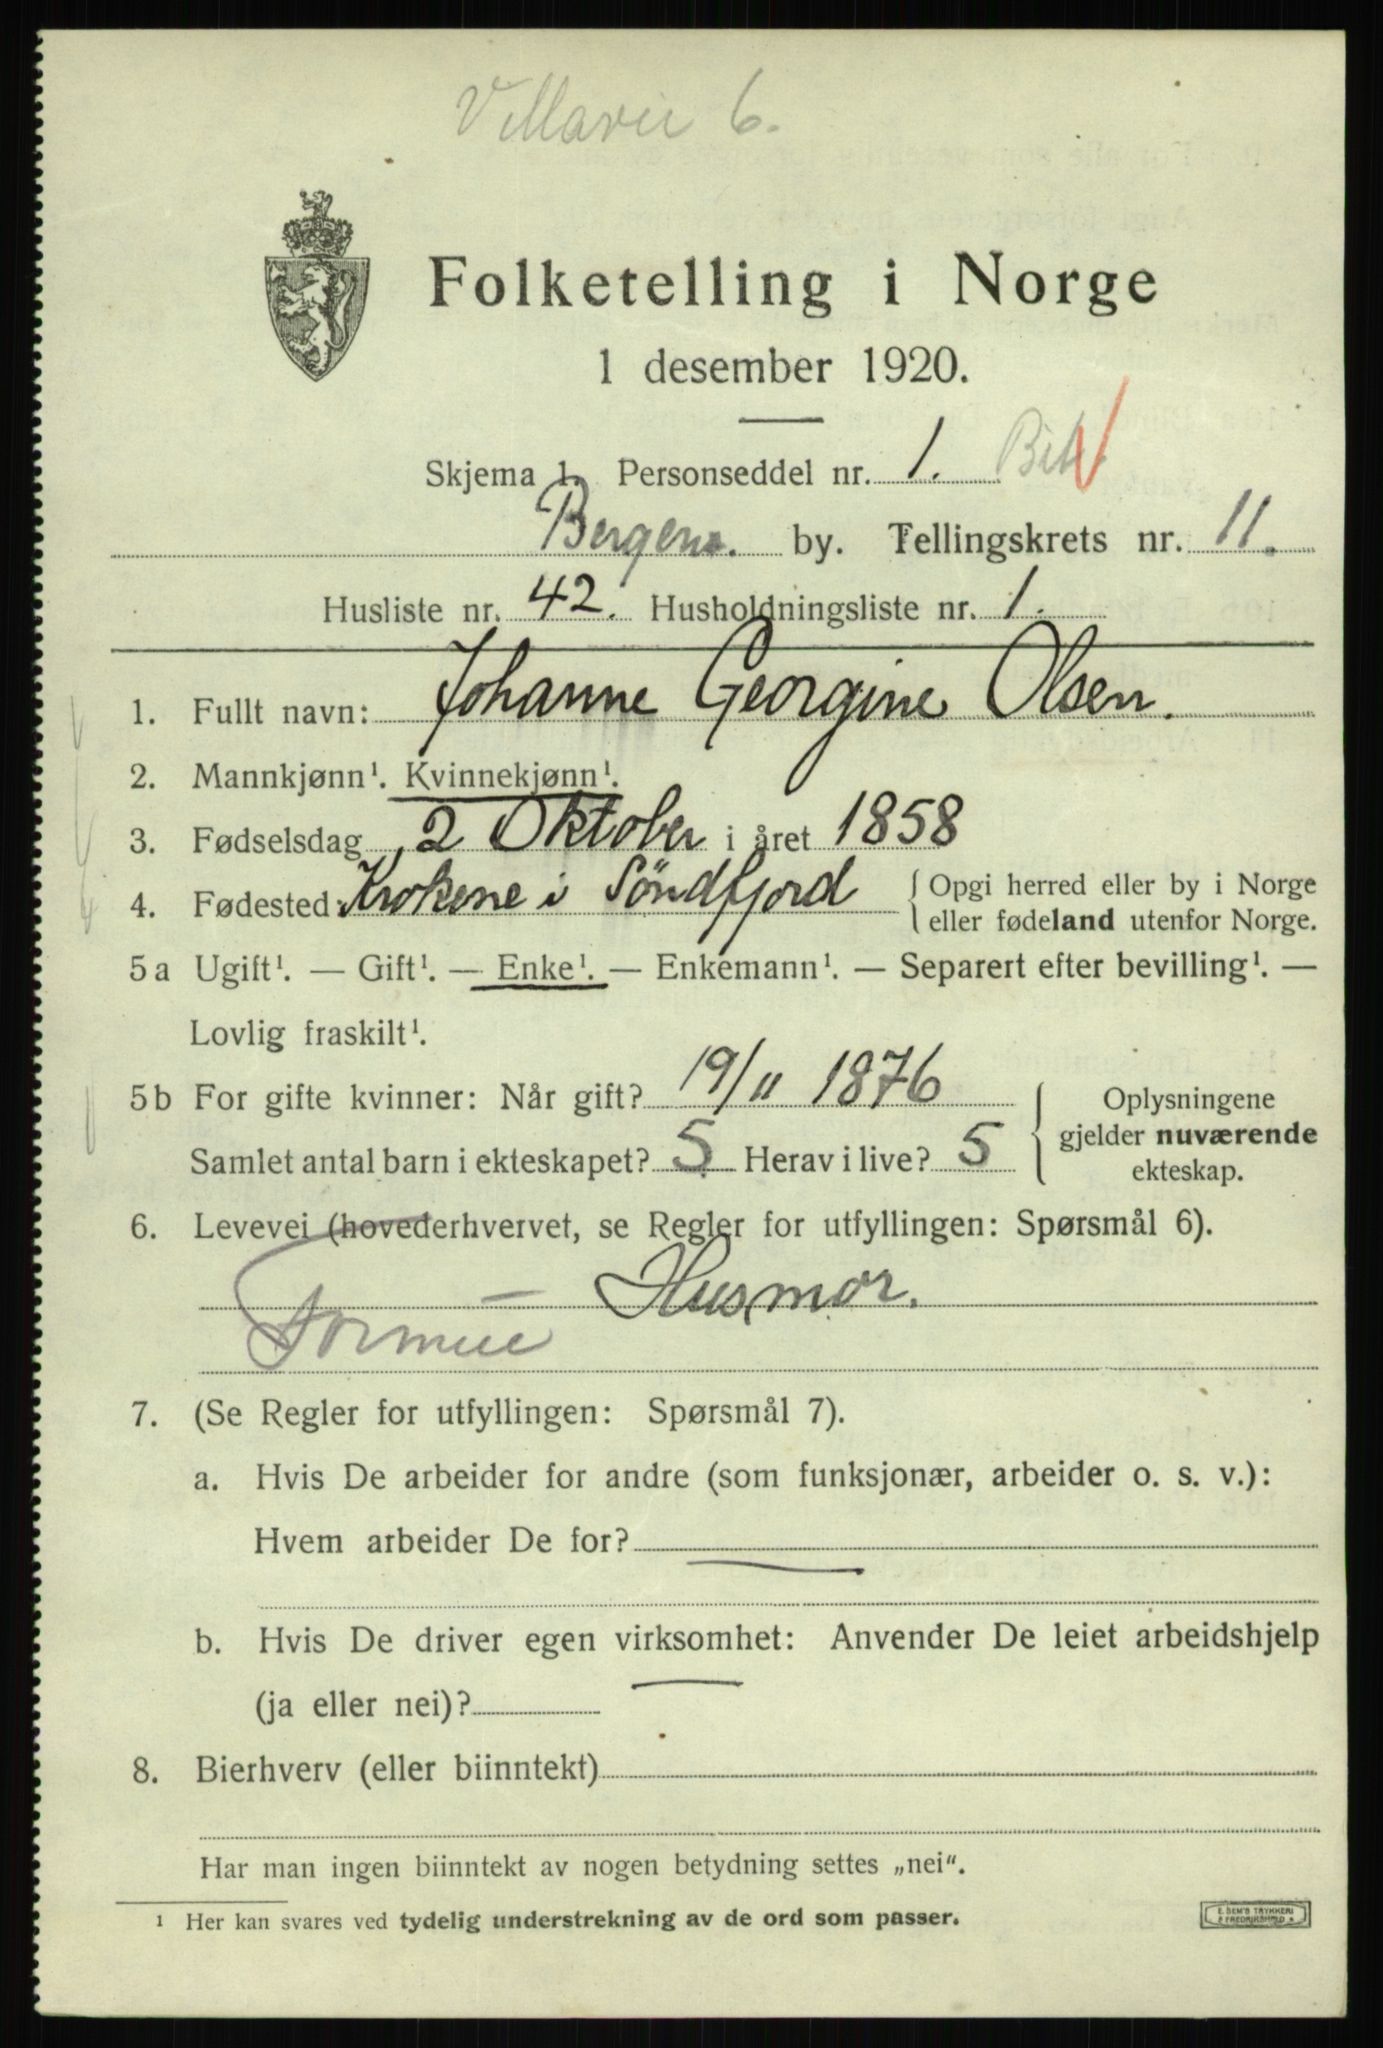 Villavei 6.
Folketelling i Norge
1 desember 1920.
Skjema 1. Personseddel nr. 1.
Bergens. by. Tellingskrets nr. 11.
Husliste nr. 42. Husholdningsliste nr. 1.
1. Fullt navn: Johanne Georgine Olsen.
2. Mannkjønn¹. Kvinnekjønn¹.
3. Fødselsdag 2 Oktober i året 1858
4. Fødested Krokene i Söndfjord { Opgi herred eller by i Norge
eller fødeland utenfor Norge.
5a Ugift¹. — Gift¹. — Enke¹. — Enkemann¹. — Separert efter bevilling¹. —
Lovlig fraskilt¹.
5b For gifte kvinner: Når gift? 19/11 1876
Samlet antal barn i ekteskapet? 5 Herav i live? 5
Oplysningene
gjelder nuværende
ekteskap.
6. Levevei (hovederhvervet, se Regler for utfyllingen: Spørsmål 6).
Husmor.
Formue
7. (Se Regler for utfyllingen: Spørsmål 7).
a. Hvis De arbeider for andre (som funksjonær, arbeider o. s. v.):
Hvem arbeider De for? —
b. Hvis De driver egen virksomhet: Anvender De leiet arbeidshjelp
(ja eller nei)? —
8. Bierhverv (eller biinntekt)
Har man ingen biinntekt av nogen betydning settes „nei“.
¹ Her kan svares ved tydelig understrekning av de ord som passer.
E. SEM'S TRYKKERI
FREDRIKSHALD